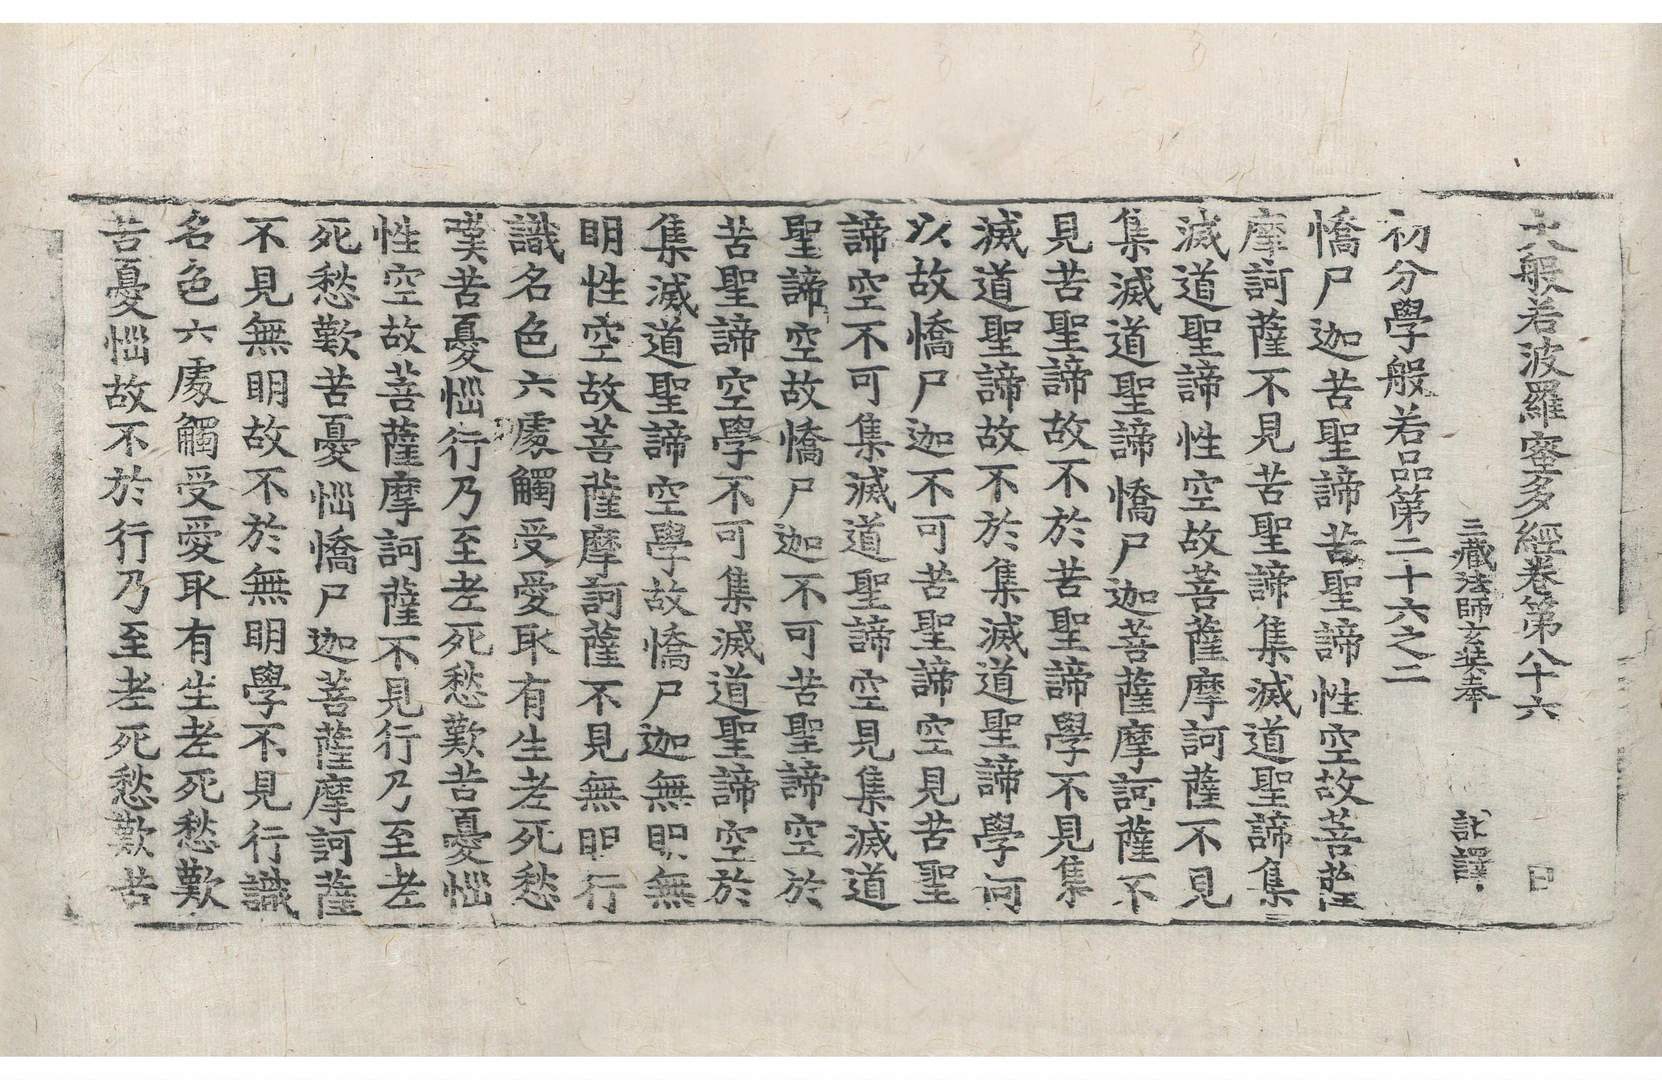 大般若波羅蜜多經卷第八十六
三藏法師玄奘奉 詔譯
初分學般若品第二十六之二
憍尸迦苦聖諦苦聖諦性空故菩薩
摩訶薩不見苦聖諦集滅道聖諦集
滅道聖諦性空故菩薩摩訶薩不見
集滅道聖諦憍尸迦菩薩摩訶薩不
見苦聖諦故不於苦聖諦學不見集
滅道聖諦故不於集滅道聖諦學何
以故憍尸迦不可苦聖諦空見苦聖
諦空不可集滅道聖諦空見集滅道
聖諦空故憍尸迦不可苦聖諦空於
苦聖諦空學不可集滅道聖諦空於
集滅道聖諦空學故憍尸迦無明無
明性空故菩薩摩訶薩不見無明行
識名色六處觸受愛取有生老死愁
嘆苦憂惱行乃至老死愁歎苦憂惱
性空故菩薩摩訶薩不見行乃至老
死愁歎苦憂惱憍尸迦菩薩摩訶薩
不見無明故不於無明學不見行識
名色六處觸受愛取有生老死愁歎
苦憂惱故不於行乃至老死愁歎苦